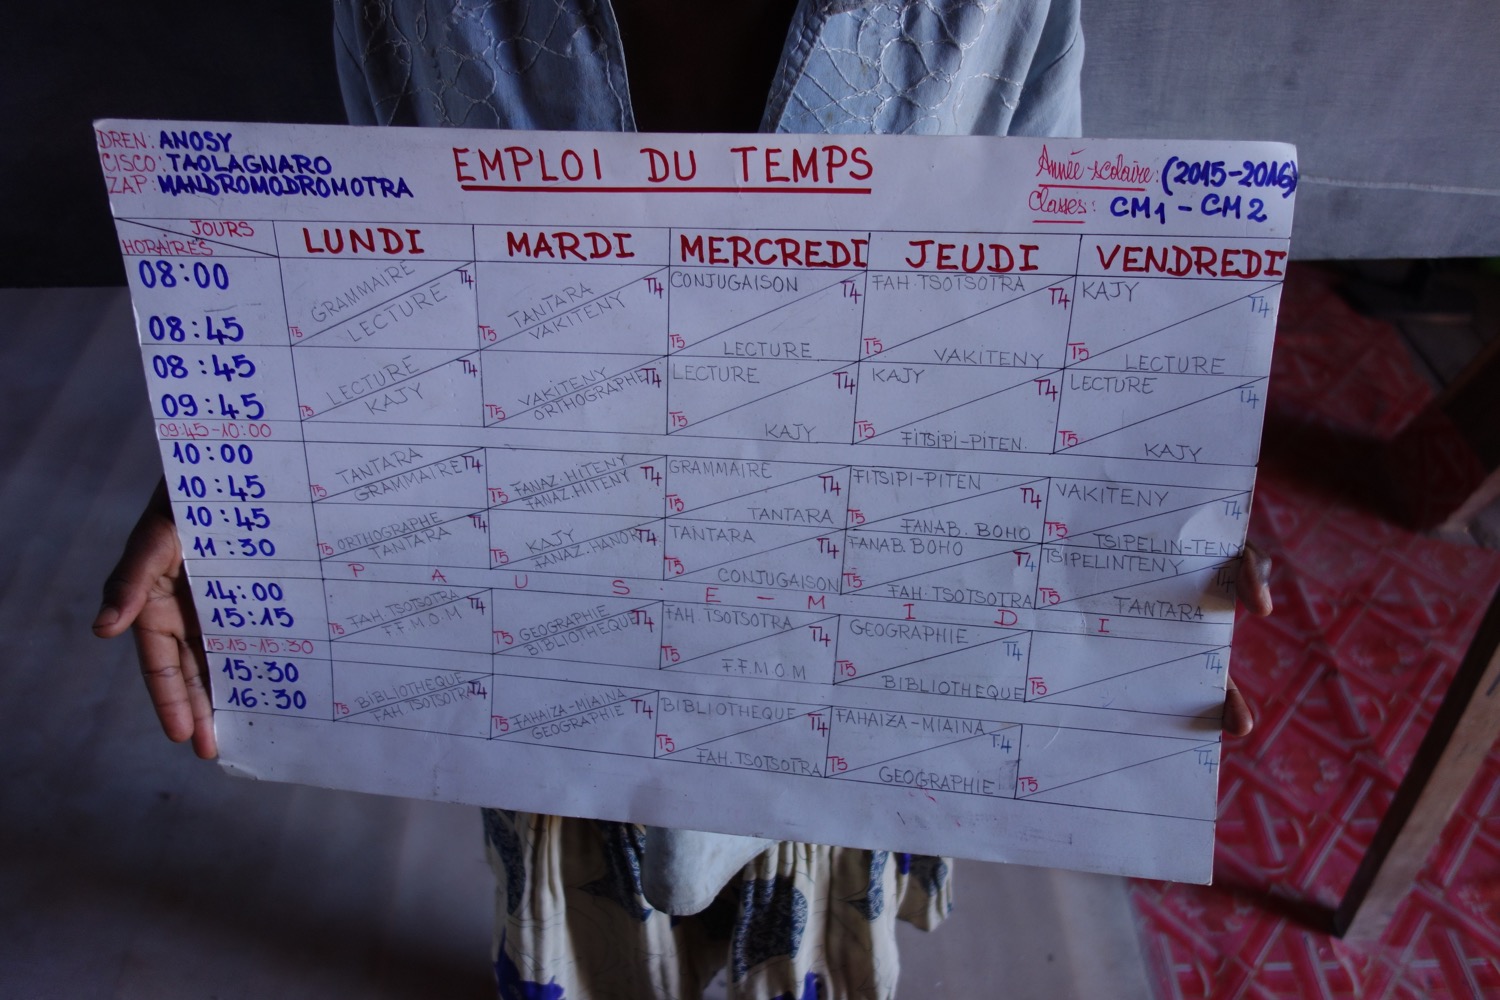 DREN: ANOSY
CISCO: TAOLAGNARO
ZAP: MANDROMODROMOTRA
EMPLOI DU TEMPS
Année-scolaire: (2015-2016)
Classes: CM1 - CM2
JOURS
HORAIRES
LUNDI MARDI MERCREDI JEUDI VENDREDI
08:00
08:45
GRAMMAIRE T4
T5 LECTURE
TANTARA T4
T5 VAKITENY
CONJUGAISON T4
T5 LECTURE
FAH.TSOTSOTRA T4
T5 VAKITENY
KAJY T4
T5 LECTURE
08:45
09:45
LECTURE T4
T5 KAJY
VAKITENY T4
T5 ORTHOGRAPHE
LECTURE T4
T5 KAJY
KAJY T4
T5 FITSIPI-PITEN.
LECTURE T4
T5 KAJY
09:45-10:00
10:00
10:45
TANTARA T4
T5 GRAMMAIRE
FANAZ.HITENY T4
T5 FANAZ.HITENY
GRAMMAIRE T4
T5 TANTARA
FITSIPI-PITEN T4
T5 FANAB. BOHO
VAKITENY T4
T5 TSIPELIN-TENY
10:45
11:30
ORTHOGRAPHE T4
T5 TANTARA
KAJY T4
T5 FANAZ.HANOR
TANTARA T4
T5 CONJUGAISON
FANAB. BOHO T4
T5 FAH.TSOTSOTRA
TSIPELINTENY T4
T5 TANTARA
PAUSE-MIDI
14:00
15:15
FAH.TSOTSOTRA T4
T5 F.F.M.O.M
GEOGRAPHIE T4
T5 BIBLIOTHEQUE
FAH.TSOTSOTRA T4
T5 F.F.M.O.M
GEOGRAPHIE T4
T5 BIBLIOTHEQUE
T4
T5
15:15-15:30
15:30
16:30
BIBLIOTHEQUE T4
T5 FAH.TSOTSOTRA
FAHAIZA-MIAINA T4
T5 GEOGRAPHIE
BIBLIOTHEQUE T4
T5 FAH.TSOTSOTRA
FAHAIZA-MIAINA T4
T5 GEOGRAPHIE
T4
T5